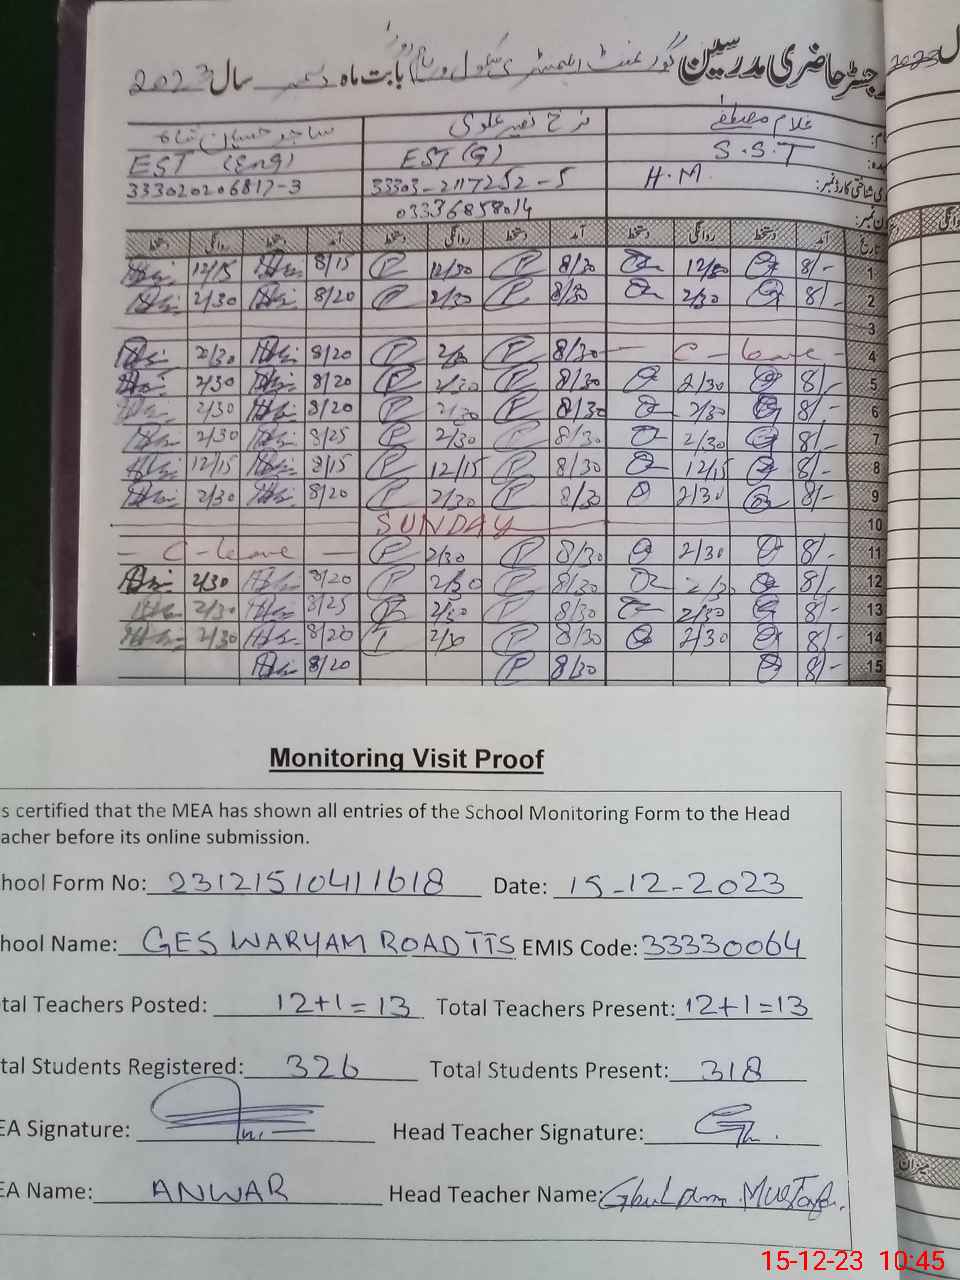 رجسٹر حاضری مدرسین گورنمنٹ ایلیمنٹری سکول بابت ماہ دسمبر سال 2023
غلام مصطفےٰ
ساجد حسین شاہ
S.S.T
EST (G)
EST (Eng)
H.M.
33303-2117252-5
333020206817-3
03336858014
تاریخ آمد دستخط روانگی دستخط آمد دستخط روانگی دستخط آمد دستخط روانگی دستخط
12/15 8/15 12/30 8/30 8/- 1
2/30 8/20 2/30 8/30 2/30 8/- 2
3
2/30 8/20 8/30 C-leave 4
2/30 8/20 2/30 8/30 2/30 8/- 5
2/30 8/20 2/30 8/30 2/30 8/- 6
2/30 8/25 2/30 8/30 2/30 8/- 7
12/15 8/15 12/15 8/30 12/15 8/- 8
2/30 8/20 2/30 8/30 2/30 8/- 9
SUNDAY 10
C-leave 2/30 8/30 2/30 8/- 11
2/30 8/20 2/30 8/30 2/30 8/- 12
2/30 8/25 2/30 8/30 2/30 8/- 13
2/30 8/20 2/30 8/30 2/30 8/- 14
8/20 8/30 8/- 15
Monitoring Visit Proof
s certified that the MEA has shown all entries of the School Monitoring Form to the Head
acher before its online submission.
hool Form No: 23121510411618 Date: 15-12-2023
hool Name: GES WARYAM ROAD TTS EMIS Code: 33330064
tal Teachers Posted: 12+1=13 Total Teachers Present: 12+1=13
tal Students Registered: 326 Total Students Present: 318
EA Signature: Head Teacher Signature:
EA Name: ANWAR Head Teacher Name: Ghulam Mustafa.
میزان
15-12-23 10:45